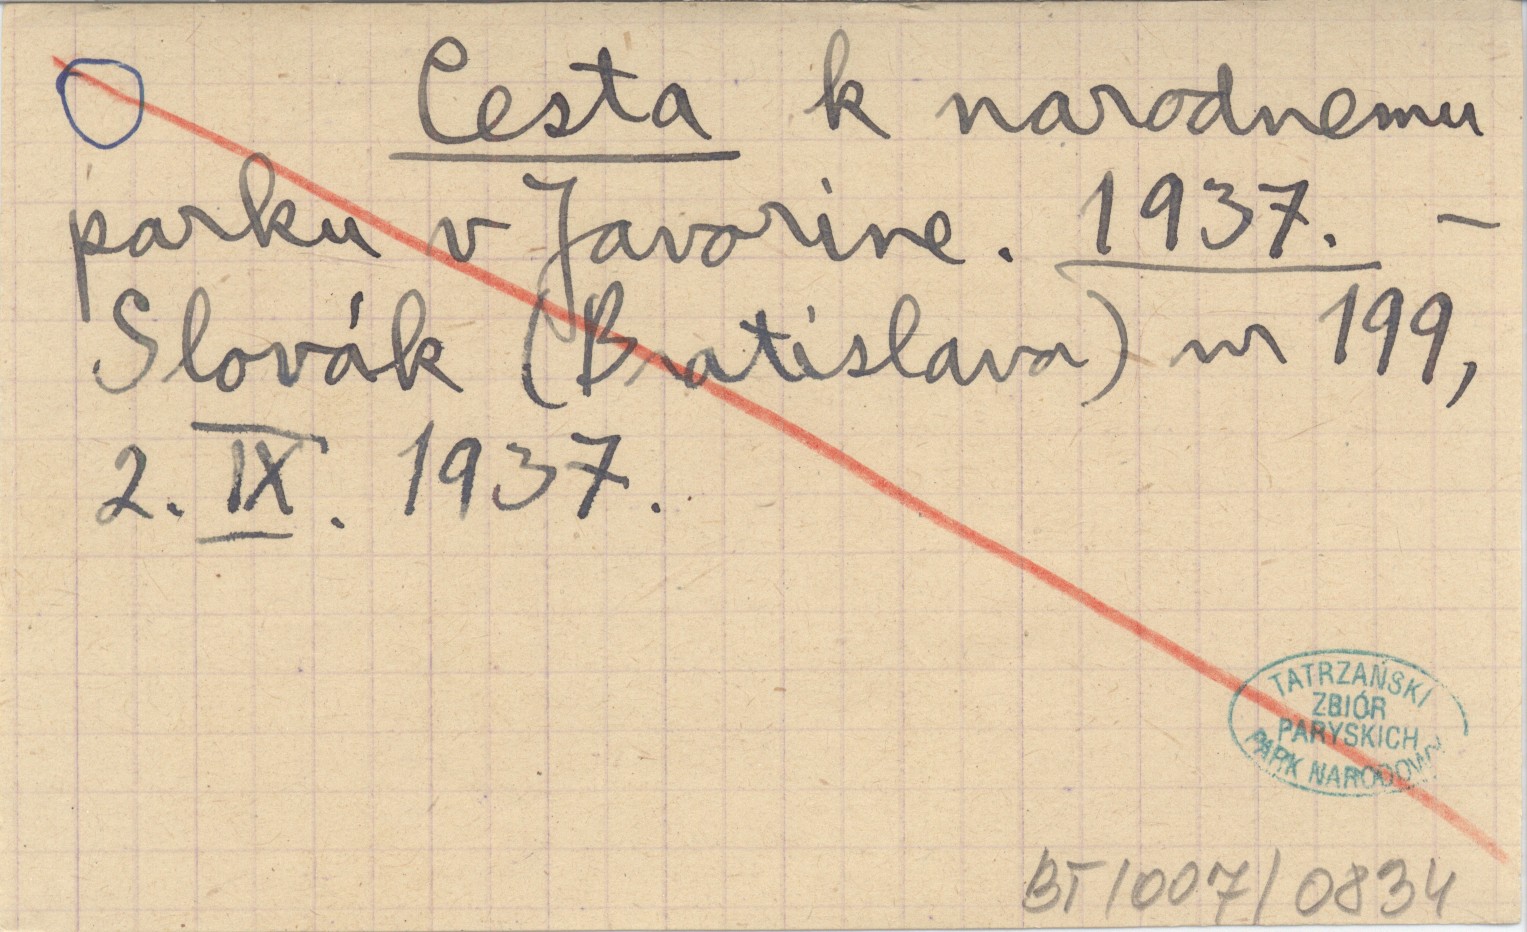 Cesta k narodnemu
parku v Javorine. 1937. –
Slovák (Bratislava) nr 199,
2. IX. 1937.
TATRZAŃSKI
ZBIÓR
PARYSKICH
PARK NARODOWY
BT/007/0834